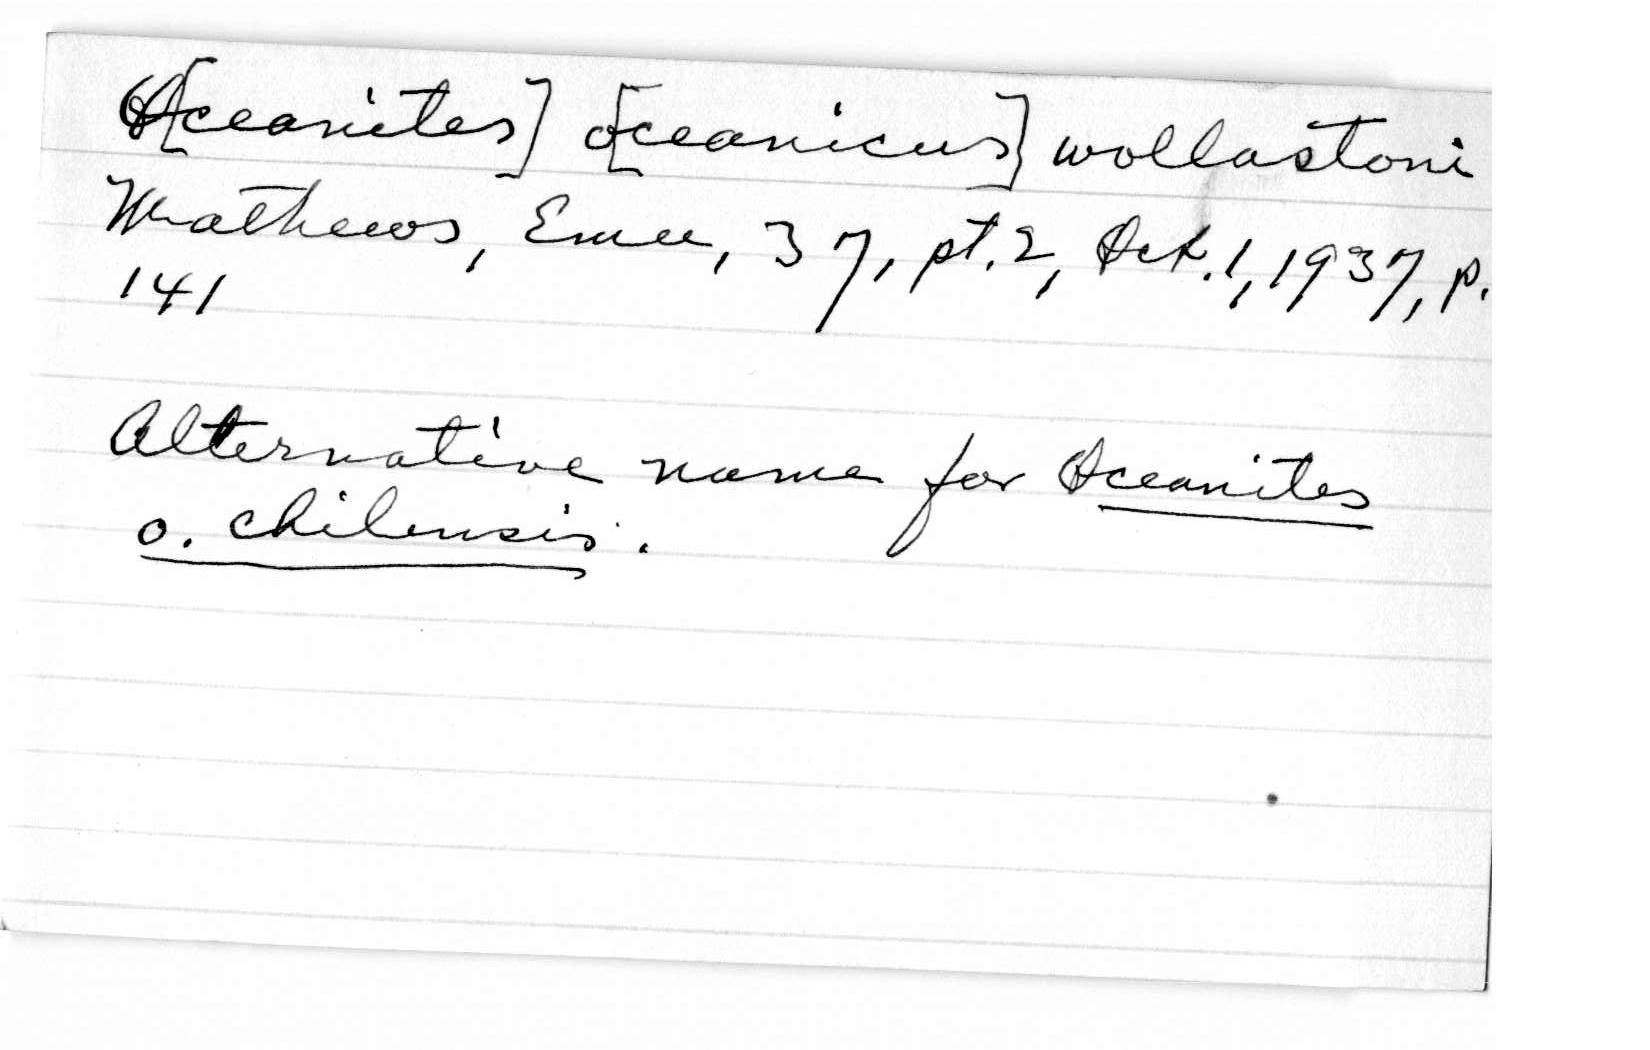 O[ceanites] o[ceanicus] wollastoni
Mathews, Emu, 37, pt. 2, Oct. 1, 1937, p.
141
Alternative name for Oceanites
o. chilensis.